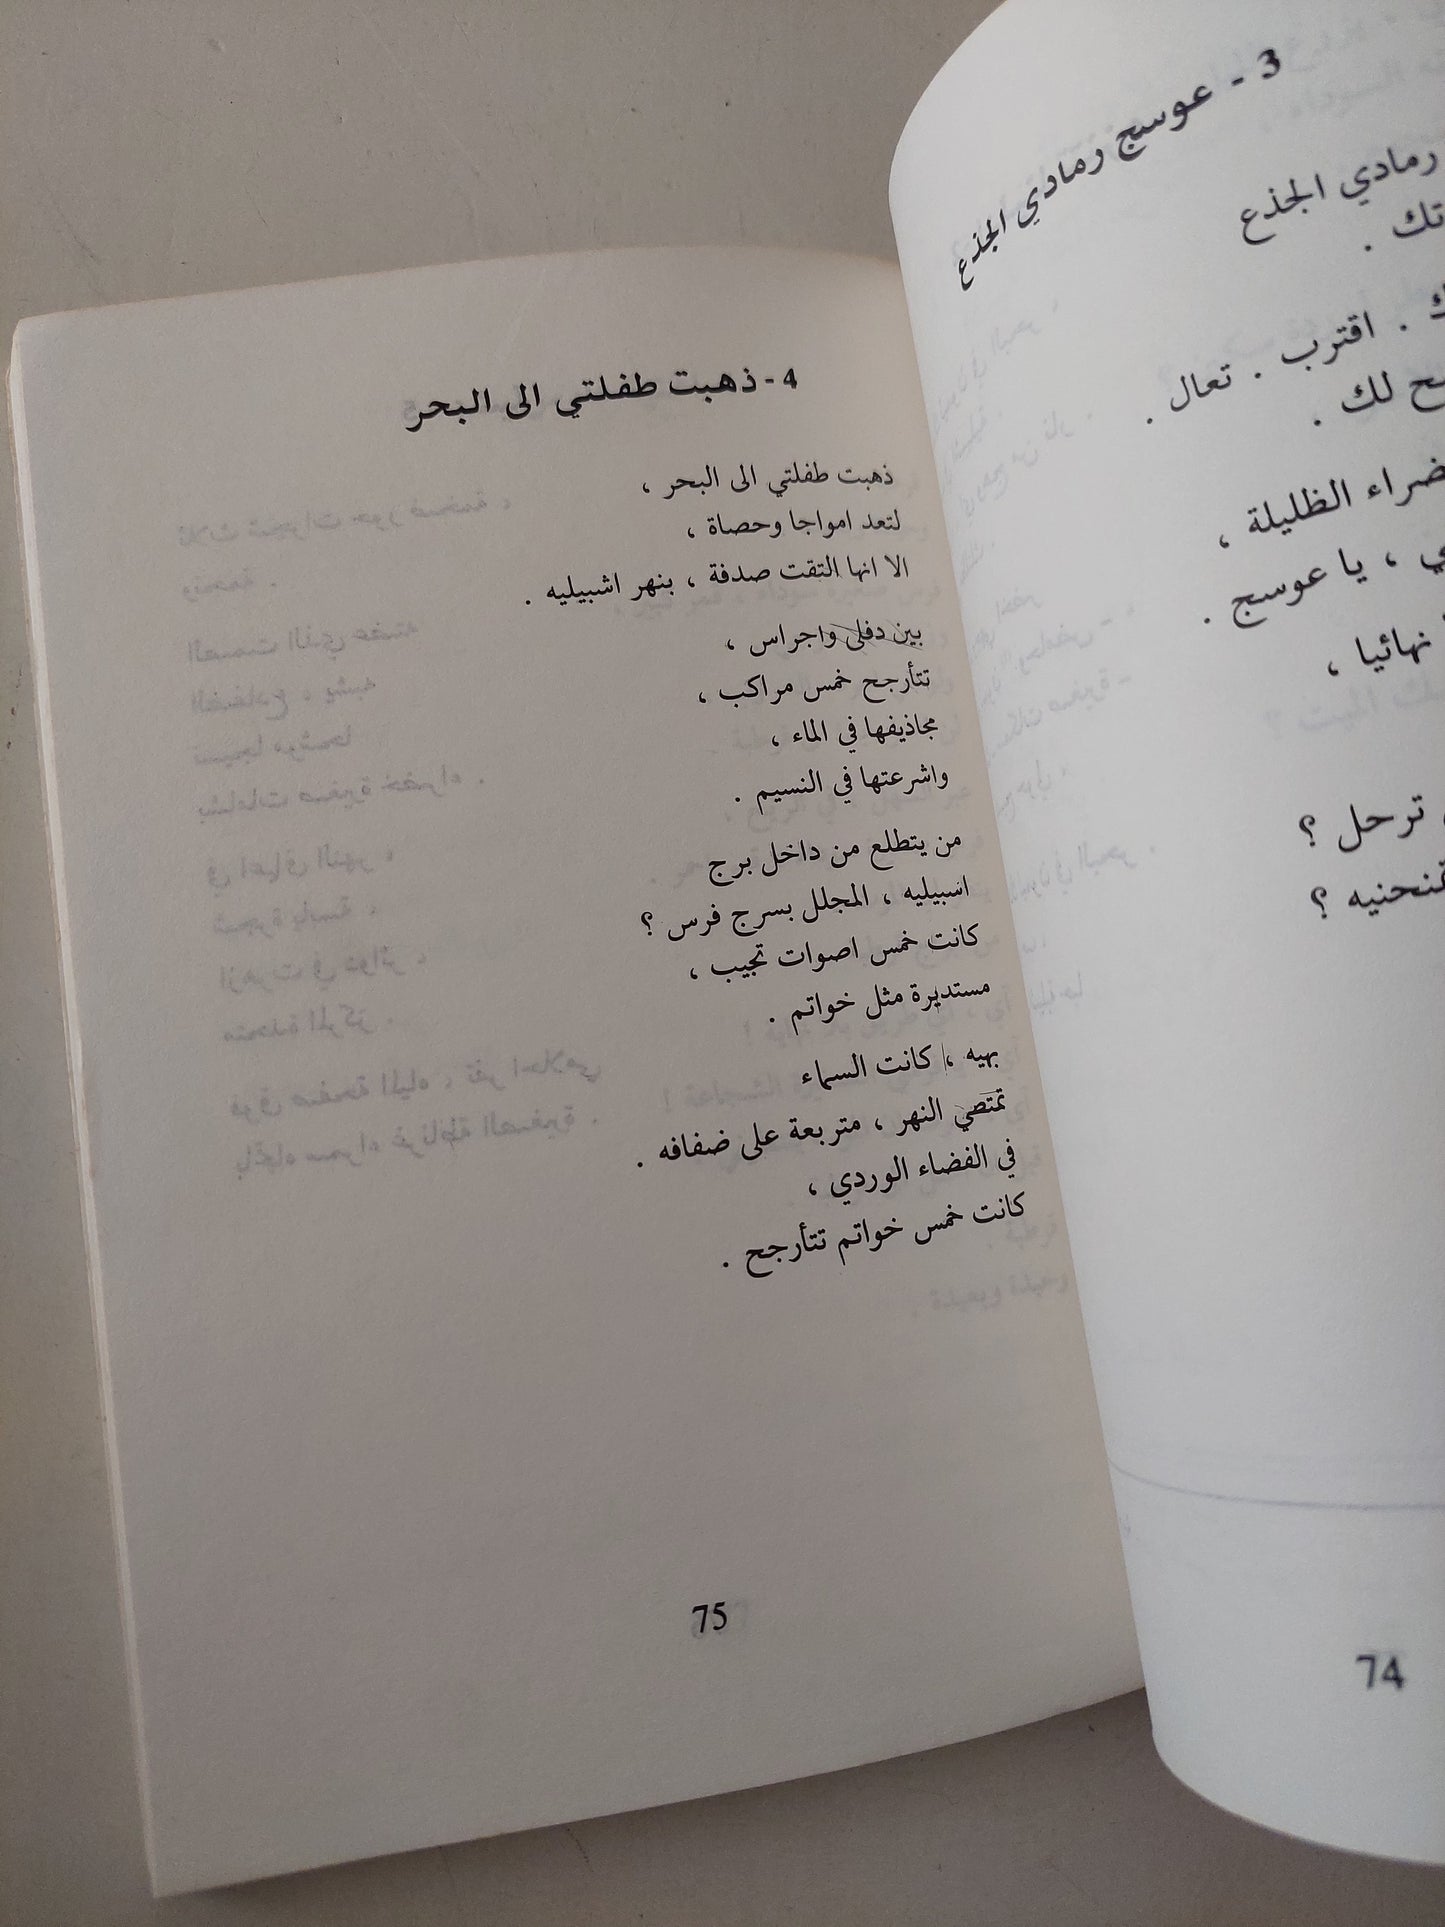 3 - عوسج رمادي الجذع
رمادي الجذع
تك .
ك . اقترب . تعال .
ح لك .
ضراء الظليلة ،
ي ، يا عوسج .
نهائيا ،
ترحل ؟
منحنيه ؟
74
4 - ذهبت طفلتي الى البحر
ذهبت طفلتي الى البحر ،
لتعد امواجا وحصاة ،
الا انها التقت صدفة ، بنهر اشبيليه .
بين دفلى واجراس ،
تتأرجح خمس مراكب ،
مجاذيفها في الماء ،
واشرعتها في النسيم .
من يتطلع من داخل برج
اشبيليه ، المجلل بسرج فرس ؟
كانت خمس اصوات تجيب ،
مستديرة مثل خواتم .
بهيه ، كانت السماء
تمتصي النهر ، متربعة على ضفافه .
في الفضاء الوردي ،
كانت خمس خواتم تتأرجح .
75